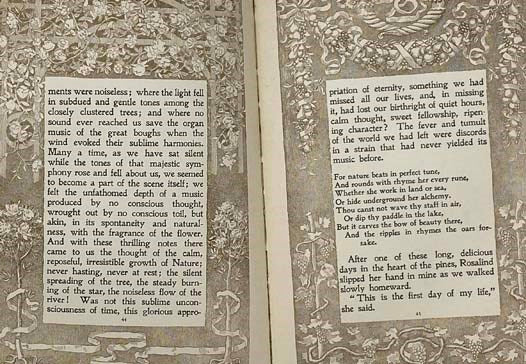 ments were noiseless; where the light fell
in subdued and gentle tones among the
closely clustered trees; and where no
sound ever reached us save the organ
music of the great boughs when the
wind evoked their sublime harmonies.
Many a time, as we have sat silent
while the tones of that majestic sym-
phony rose and fell about us, we seemed
to become a part of the scene itself; we
felt the unfathomed depth of a music
produced by no conscious thought,
wrought out by no conscious toil, but
akin, in its spontaneity and natural-
ness, with the fragrance of the flower.
And with these thrilling notes there
came to us the thought of the calm,
reposeful, irresistible growth of Nature;
never hasting, never at rest; the silent
spreading of the tree, the steady burn-
ing of the star, the noiseless flow of the
river! Was not this sublime uncon-
sciousness of time, this glorious appro-
44
priation of eternity, something we had
missed all our lives, and, in missing
it, had lost our birthright of quiet hours,
calm thought, sweet fellowship, ripen-
ing character? The fever and tumult
of the world we had left were discords
in a strain that had never yielded its
music before.
For nature beats in perfect tune,
And rounds with rhyme her every rune,
Whether she work in land or sea,
Or hide underground her alchemy.
Thou canst not wave thy staff in air,
Or dip thy paddle in the lake,
But it carves the bow of beauty there,
And the ripples in rhymes the oars for-
sake.
After one of these long, delicious
days in the heart of the pines, Rosalind
slipped her hand in mine as we walked
slowly homeward.
"This is the first day of my life,"
she said.
45